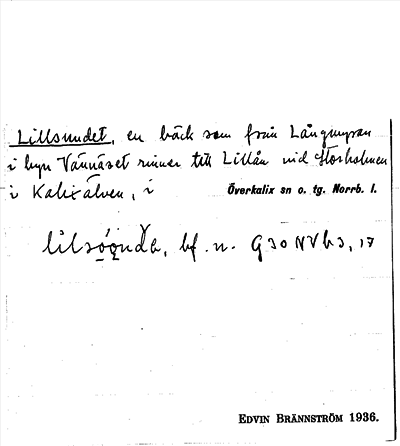 Lillsundet, en bäck som från Långmyran
i byn Vännäset rinner till Lillån vid Storholmen
i Kalixälven, i Överkalix sn o. tg. Norrb. l.
bf. n. G30NVb3, 17
EDVIN BRÄNNSTRÖM 1936.